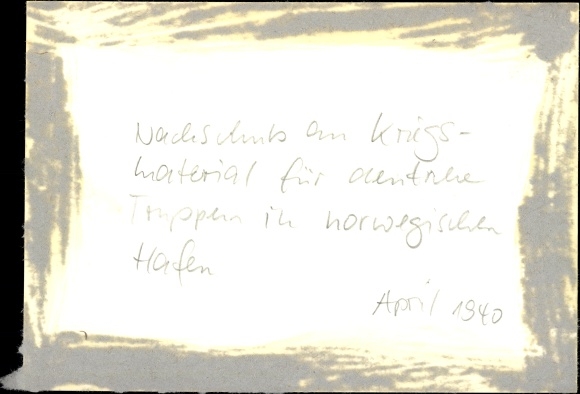 Nachschub an Kriegs-
material für deutsche
Truppen in norwegischen
Hafen
April 1940